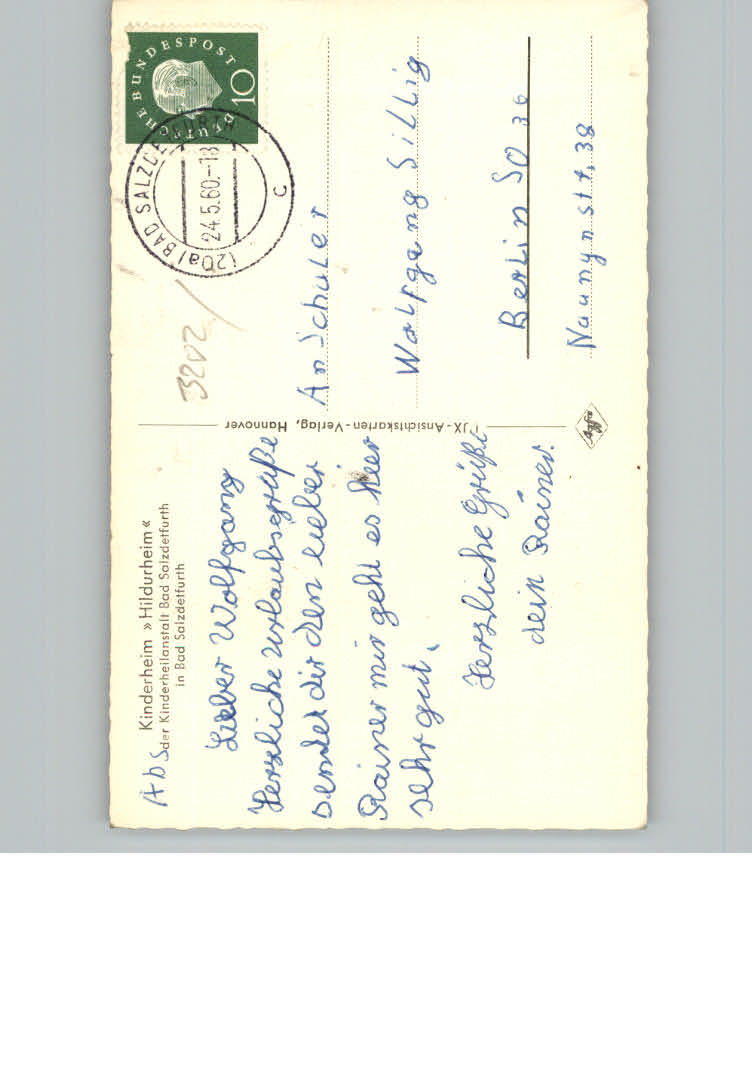 Abs
Kinderheim »Hildurheim«
der Kinderheilanstalt Bad Salzdetfurth
in Bad Salzdetfurth
Lieber Wolfgang
Herzliche urlaubsgrüße
sendet dir den lieber
Rainer mir geht es hier
sehr gut.
Herzliche Grüße
dein Rainer.
JX-Ansichtskarten-Verlag, Hannover
Agfa
DEUTSCHE BUNDESPOST
10
(20a) BAD SALZDETFURTH
24.5.60.-18
c
3202
An Schüler
Wolfgang Sillig
Berlin SO 36
Naunynstr, 38